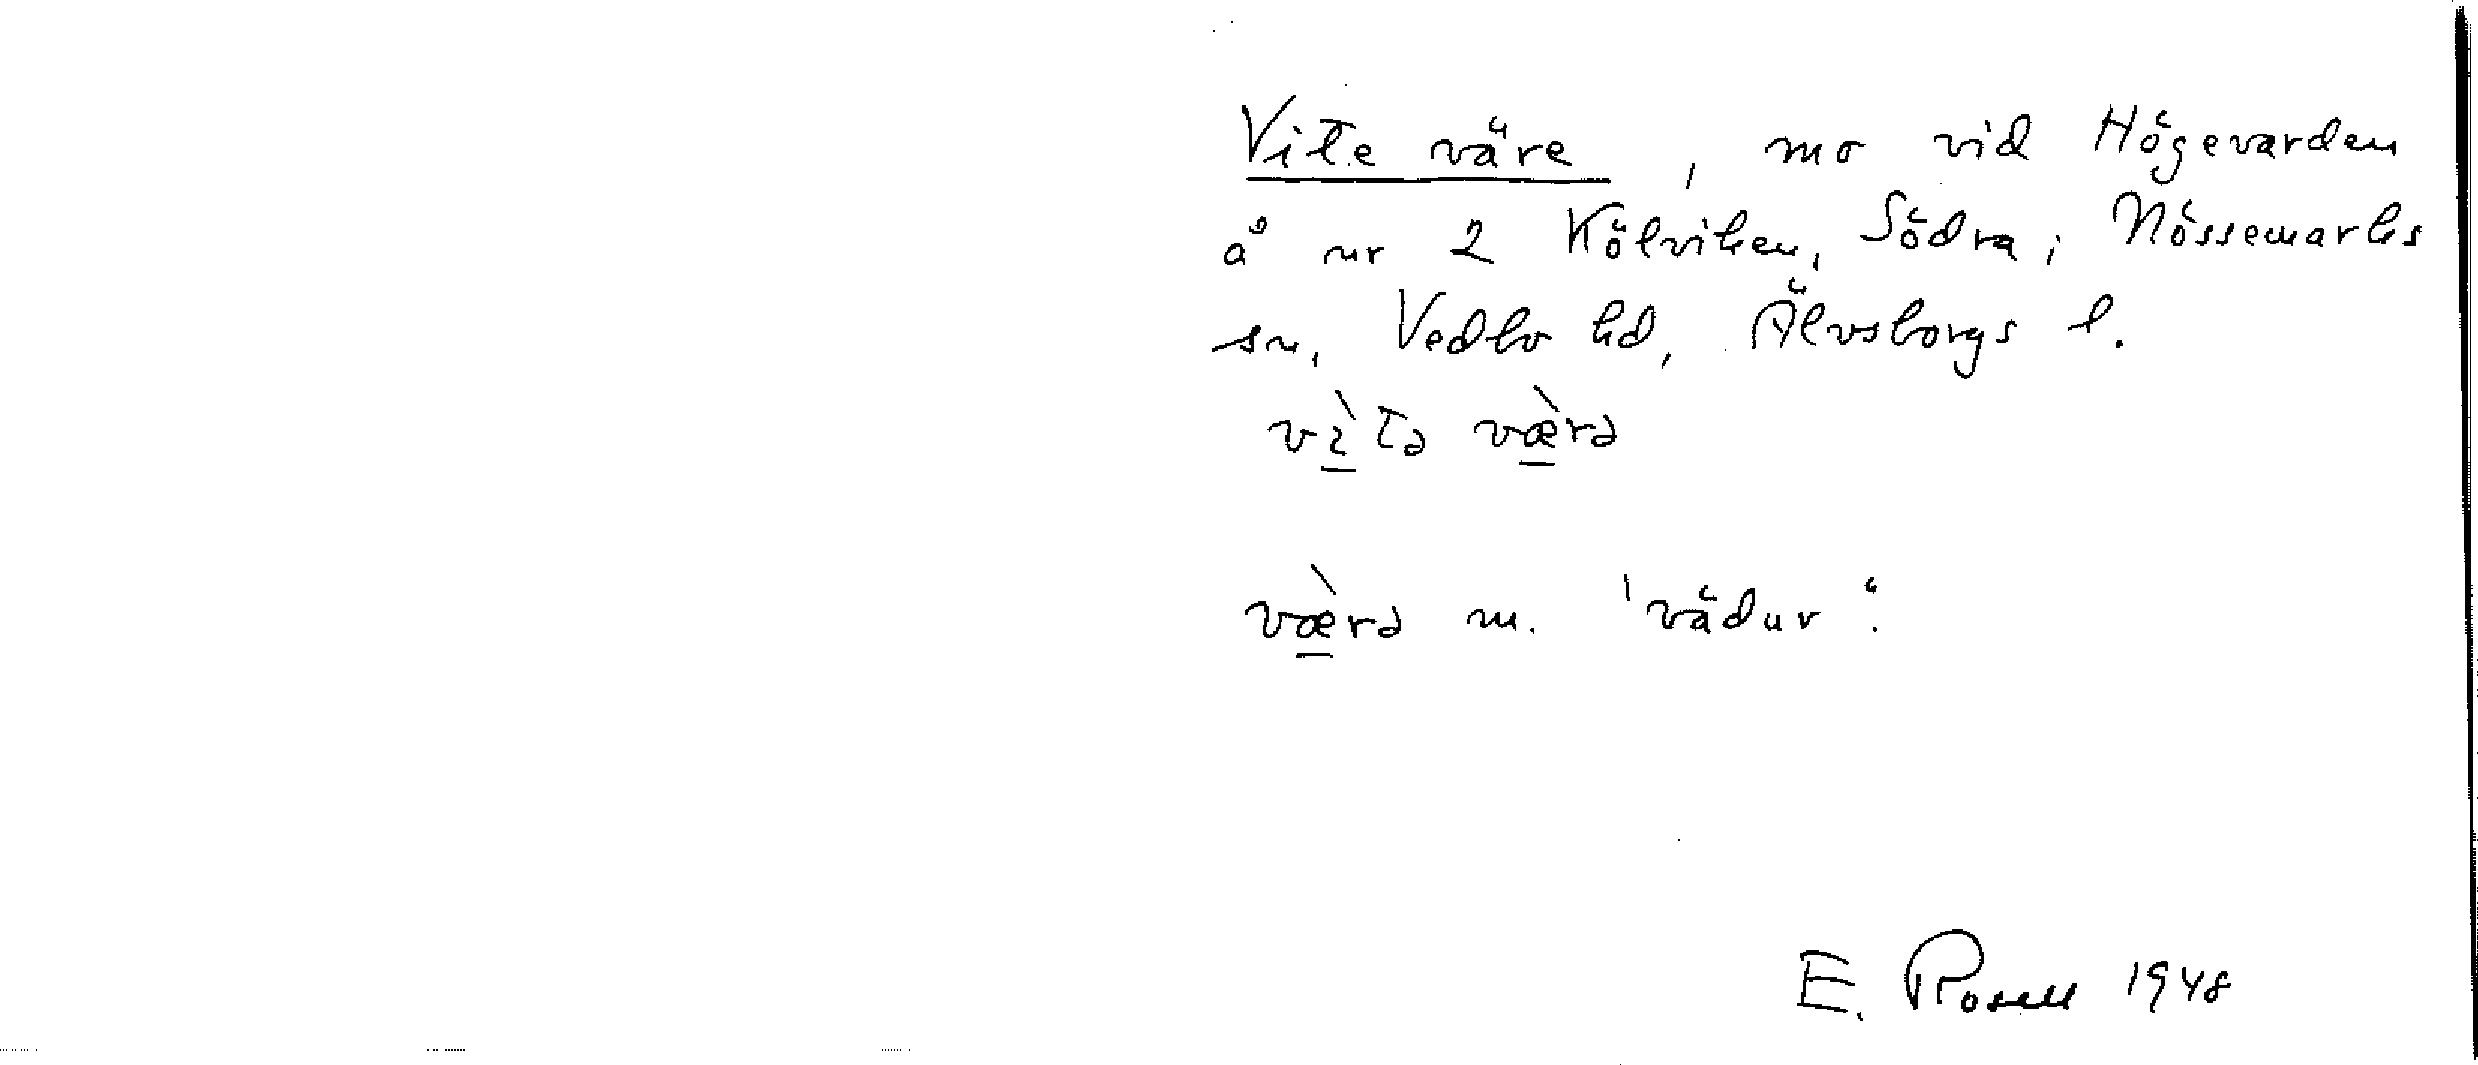 Vite väre, mo vid Högevarden
å nr 2 Kölviken, Södra, Nössemarks
sn, Vedbo hd, Älvsborgs l.
vìtə væ̀rə
væ̀rə m. 'vädur'.
E. Rosell 1948